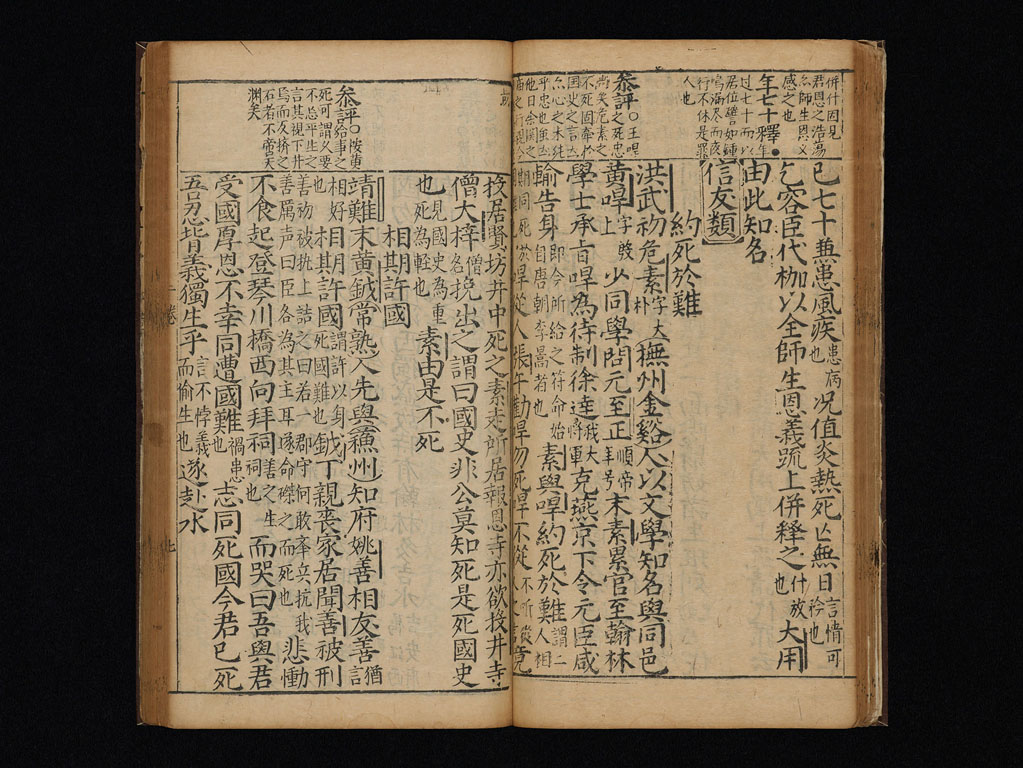 併什因見
君恩之浩蕩
師生恩义
感之也
年七十釋。年
过七十而以
居位譬如鍾
鳴漏尽而夜
行不休是罪
人也
叅評○王
之死忠
已七十兼患風疾患病也况值炎熱死亡無日言情可矜也
乞容臣代枷以全師生恩義疏上併釋之什放也大用
由此知名
信友類
約死於難
洪武初危素字大朴撫州金谿人以文學知名與同邑
黃哻字殷士少同學問元至正順帝年号末素累官至翰林
學士承旨哻為待制徐達我大將軍克燕京下令元臣咸
輸告身即今所給之符命始自唐朝李暠者也素與哻約死於難謂二人相
期同死於難哻從人張午勸哻勿死哻不從不听從人之言竟
叅評○按黄
給事之
死可謂久要
不忘平生之
言其視下井
石者不啻天
淵矣
投居賢坊井中死之素走所居報恩寺亦欲投井寺
僧大梓僧名挽出之謂曰國史非公莫知死是死國史
也見國史為重死為軽也素由是不死
相期許國
靖難末黃鉞常熟人先與蘇州知府姚善相友善猶
相好也相期許國謂許以身死國難也鉞丁親喪家居聞善被刑
善初被执上詰之曰若一郡守何敢舉兵抗我善厲声曰臣各為其主耳遂命磔之而死也悲慟
不食起登琴川橋西向拜祠善之生祠也而哭曰吾與君
受國厚恩不幸同遭國難禍患也志同死國今君已死
吾忍背義獨生乎言不悖義而偷生也遂赴水